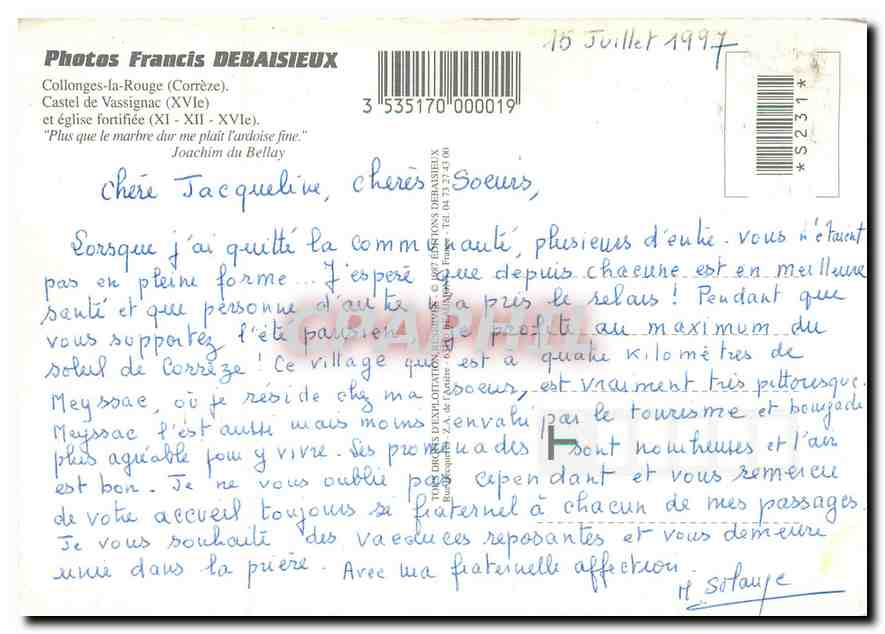 15 Juillet 1997
Photos Francis DEBAISIEUX
Collonges-la-Rouge (Corrèze).
Castel de Vassignac (XVIe)
et église fortifiée (XI - XII - XVIe).
"Plus que le marbre dur me plaît l'ardoise fine."
Joachim du Bellay
3 535170 000019
*S231*
Chère Jacqueline, chères Soeurs,
Lorsque j'ai quitté la communauté, plusieurs d'entre vous n'étaient
pas en pleine forme... J'espère que depuis chacune est en meilleure
santé et que personne d'autre n'a pris le relais ! Pendant que
vous supportez l'été parisien, je profite au maximum du
soleil de Corrèze ! Ce village qui est à quatre kilomètres de
Meyssac, où je réside chez ma soeur, est vraiment très pittoresque.
Meyssac l'est aussi mais moins envahi par le tourisme et
plus agréable pour y vivre. Les promenades sont nombreuses et l'air
est bon. Je ne vous oublie pas cependant et vous remercie
de votre accueil toujours si fraternel à chacun de mes passages.
Je vous souhaite des vacances reposantes et vous demeure
unie dans la prière. Avec ma fraternelle affection.
M. Solange
TOUS DROITS D'EXPLOITATION RÉSERVÉS © 1997 ÉDITIONS DEBAISIEUX
Z.A. de l'Artière - BEAUMONT France - Tél. 04 73 27 43 00